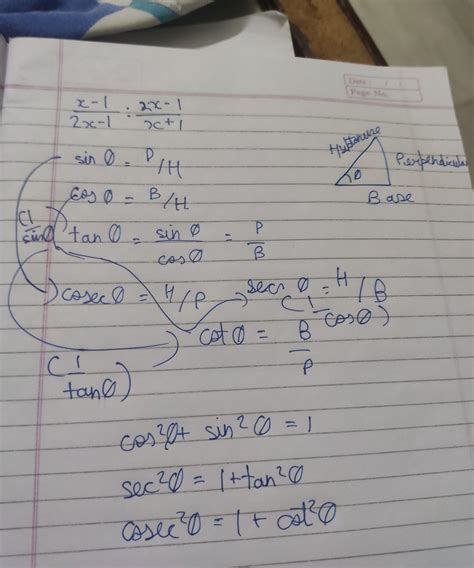 Date : / /
Page No.
x-1/2x-1 : 2x-1/x+1
sin θ = P/H
Hypotenuse
Perpendicular
θ
Base
cos θ = B/H
(1/sinθ)
tan θ = sinθ/cosθ = P/B
cosec θ = H/P
sec θ = H/B
(1/cosθ)
cot θ = B/P
(1/tanθ)
cos²θ + sin²θ = 1
sec²θ = 1 + tan²θ
cosec²θ = 1 + cot²θ